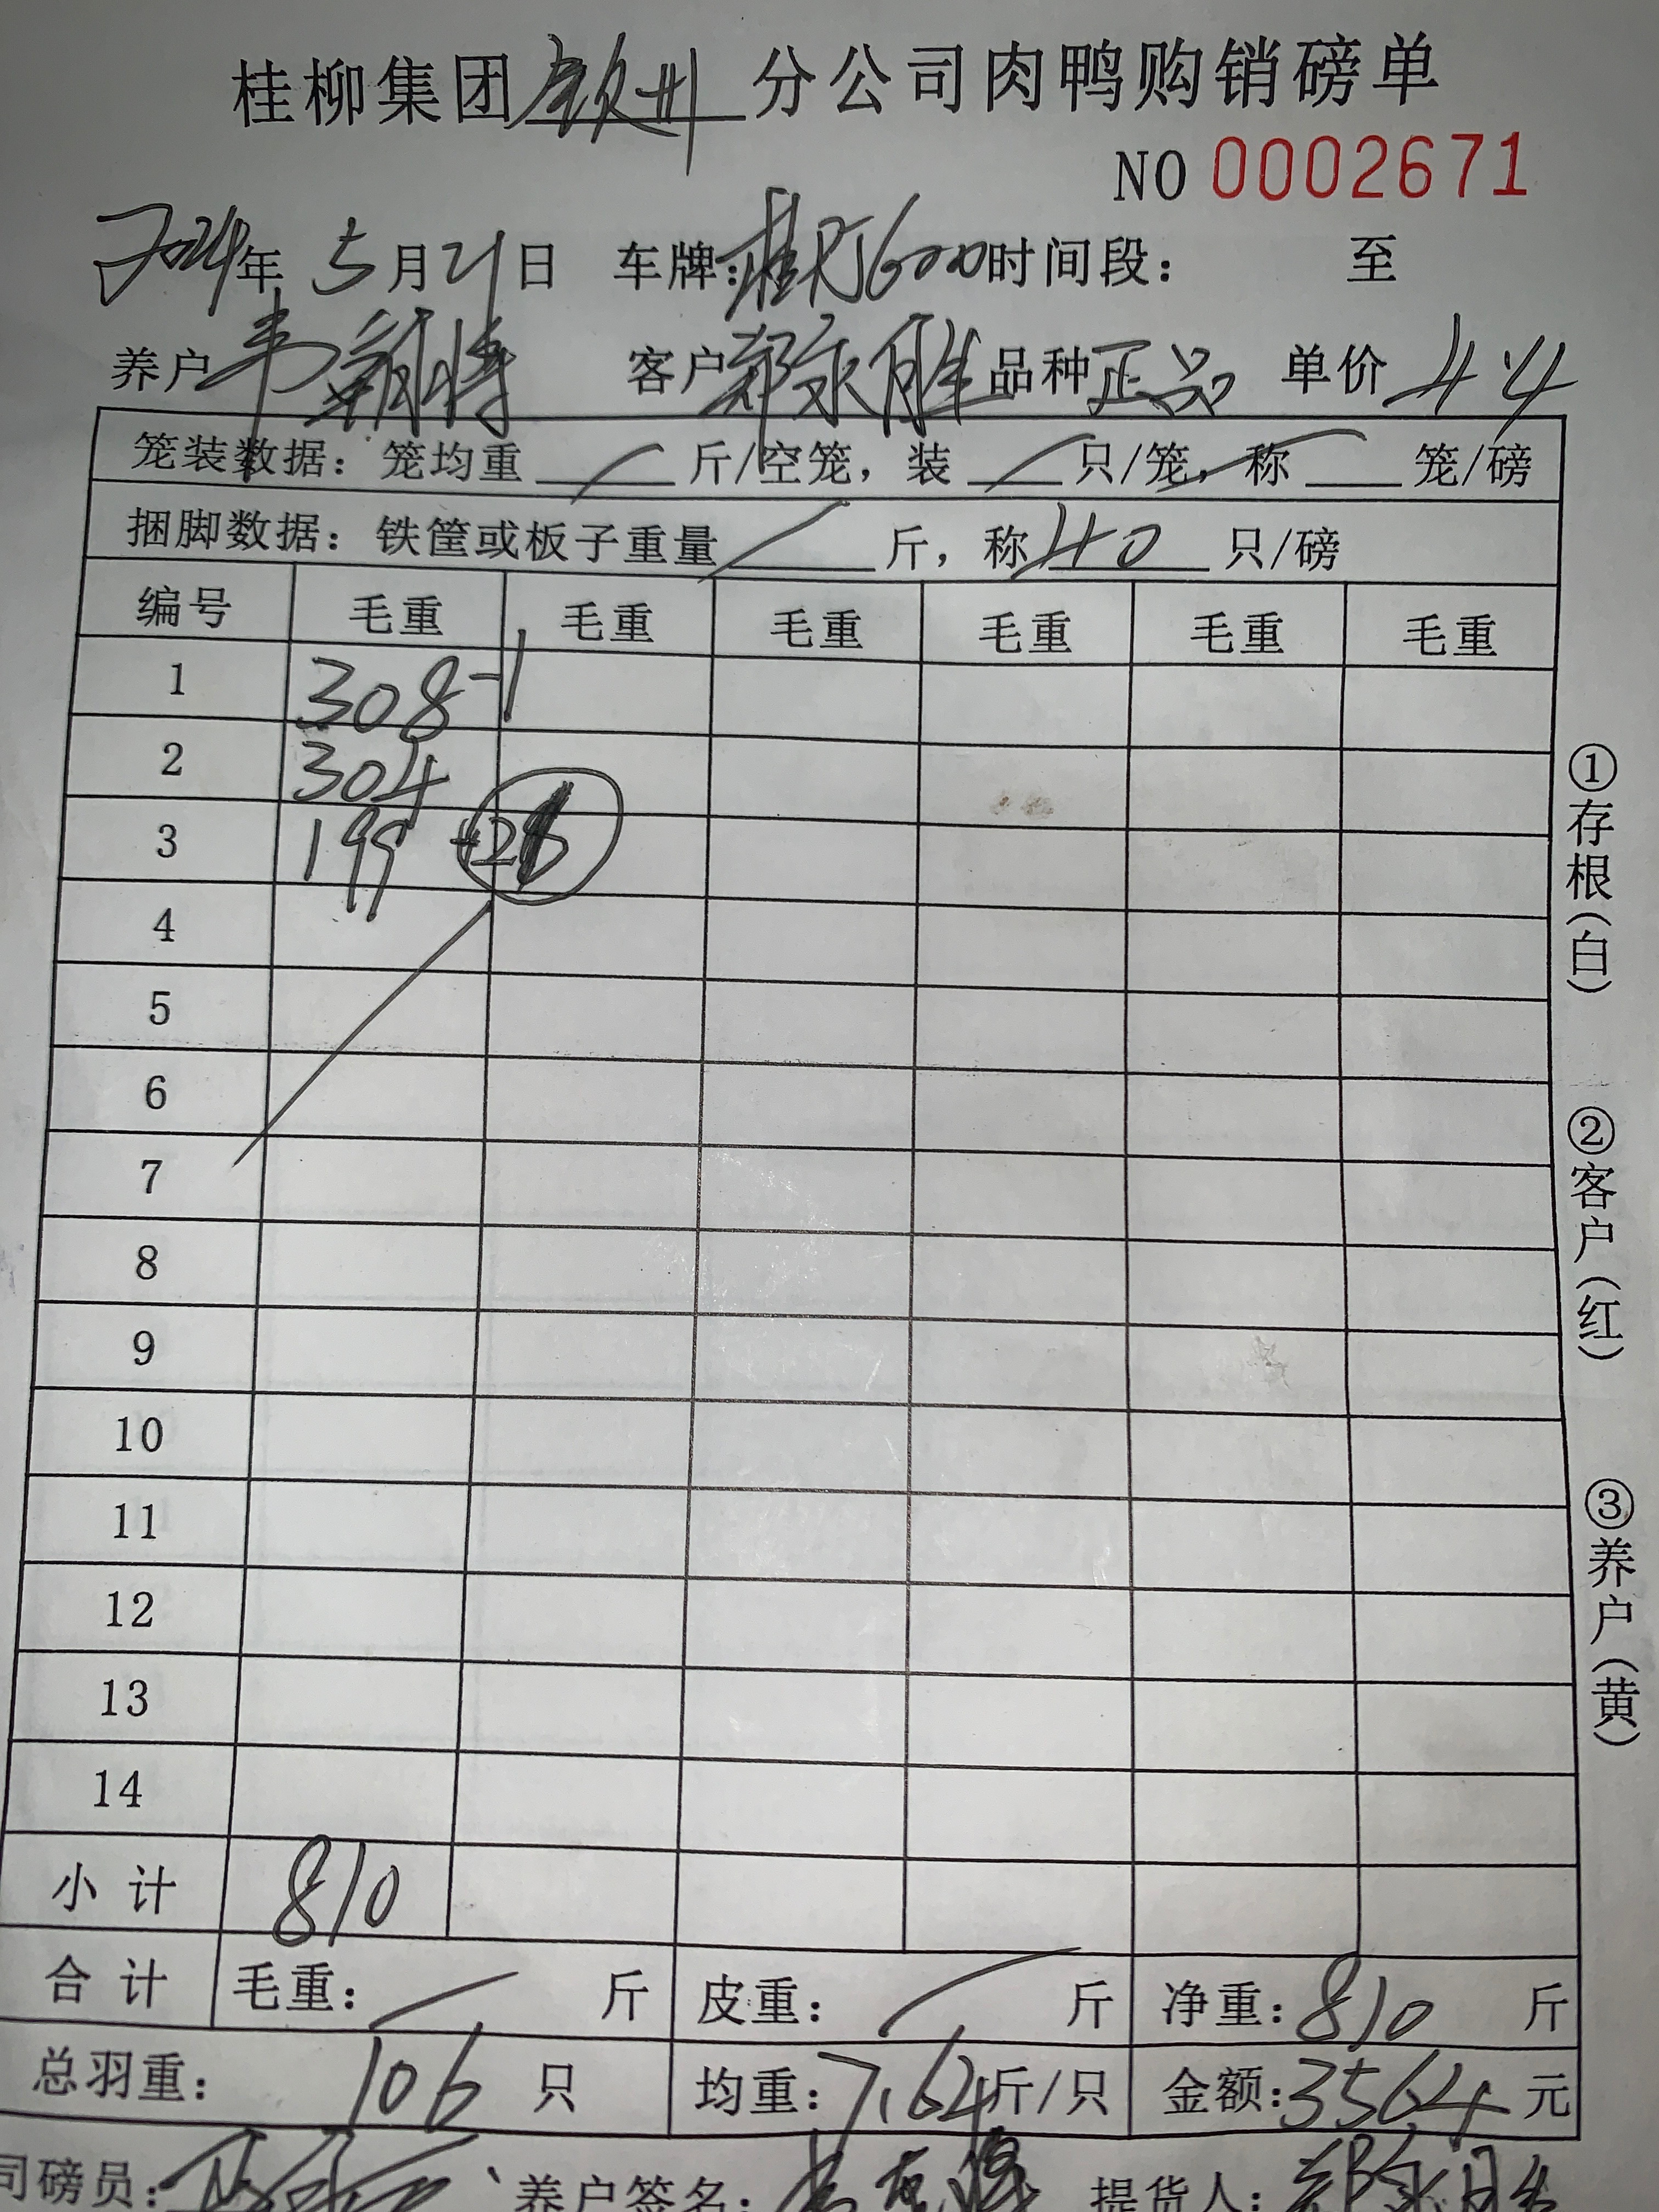 桂柳集团钦州分公司肉鸭购销磅单
NO 0002671
2024年 5月21日 车牌：桂R J6000 时间段： 至
养户 韦 客户 郑永胜 品种 正品 单价 4.4
笼装数据：笼均重 斤/空笼，装 只/笼，称 笼/磅
捆脚数据：铁筐或板子重量 斤，称 40 只/磅
编号 毛重 毛重 毛重 毛重 毛重 毛重
1 308 -1
2 304
3 199
4
5
6
7
8
9
10
11
12
13
14
小计 810
合计 毛重： 斤 皮重： 斤 净重：810 斤
总羽重： 106 只 均重：7.64 斤/只 金额：3564 元
司磅员： 养户签名： 提货人：郑永胜
①存根（白）
②客户（红）
③养户（黄）